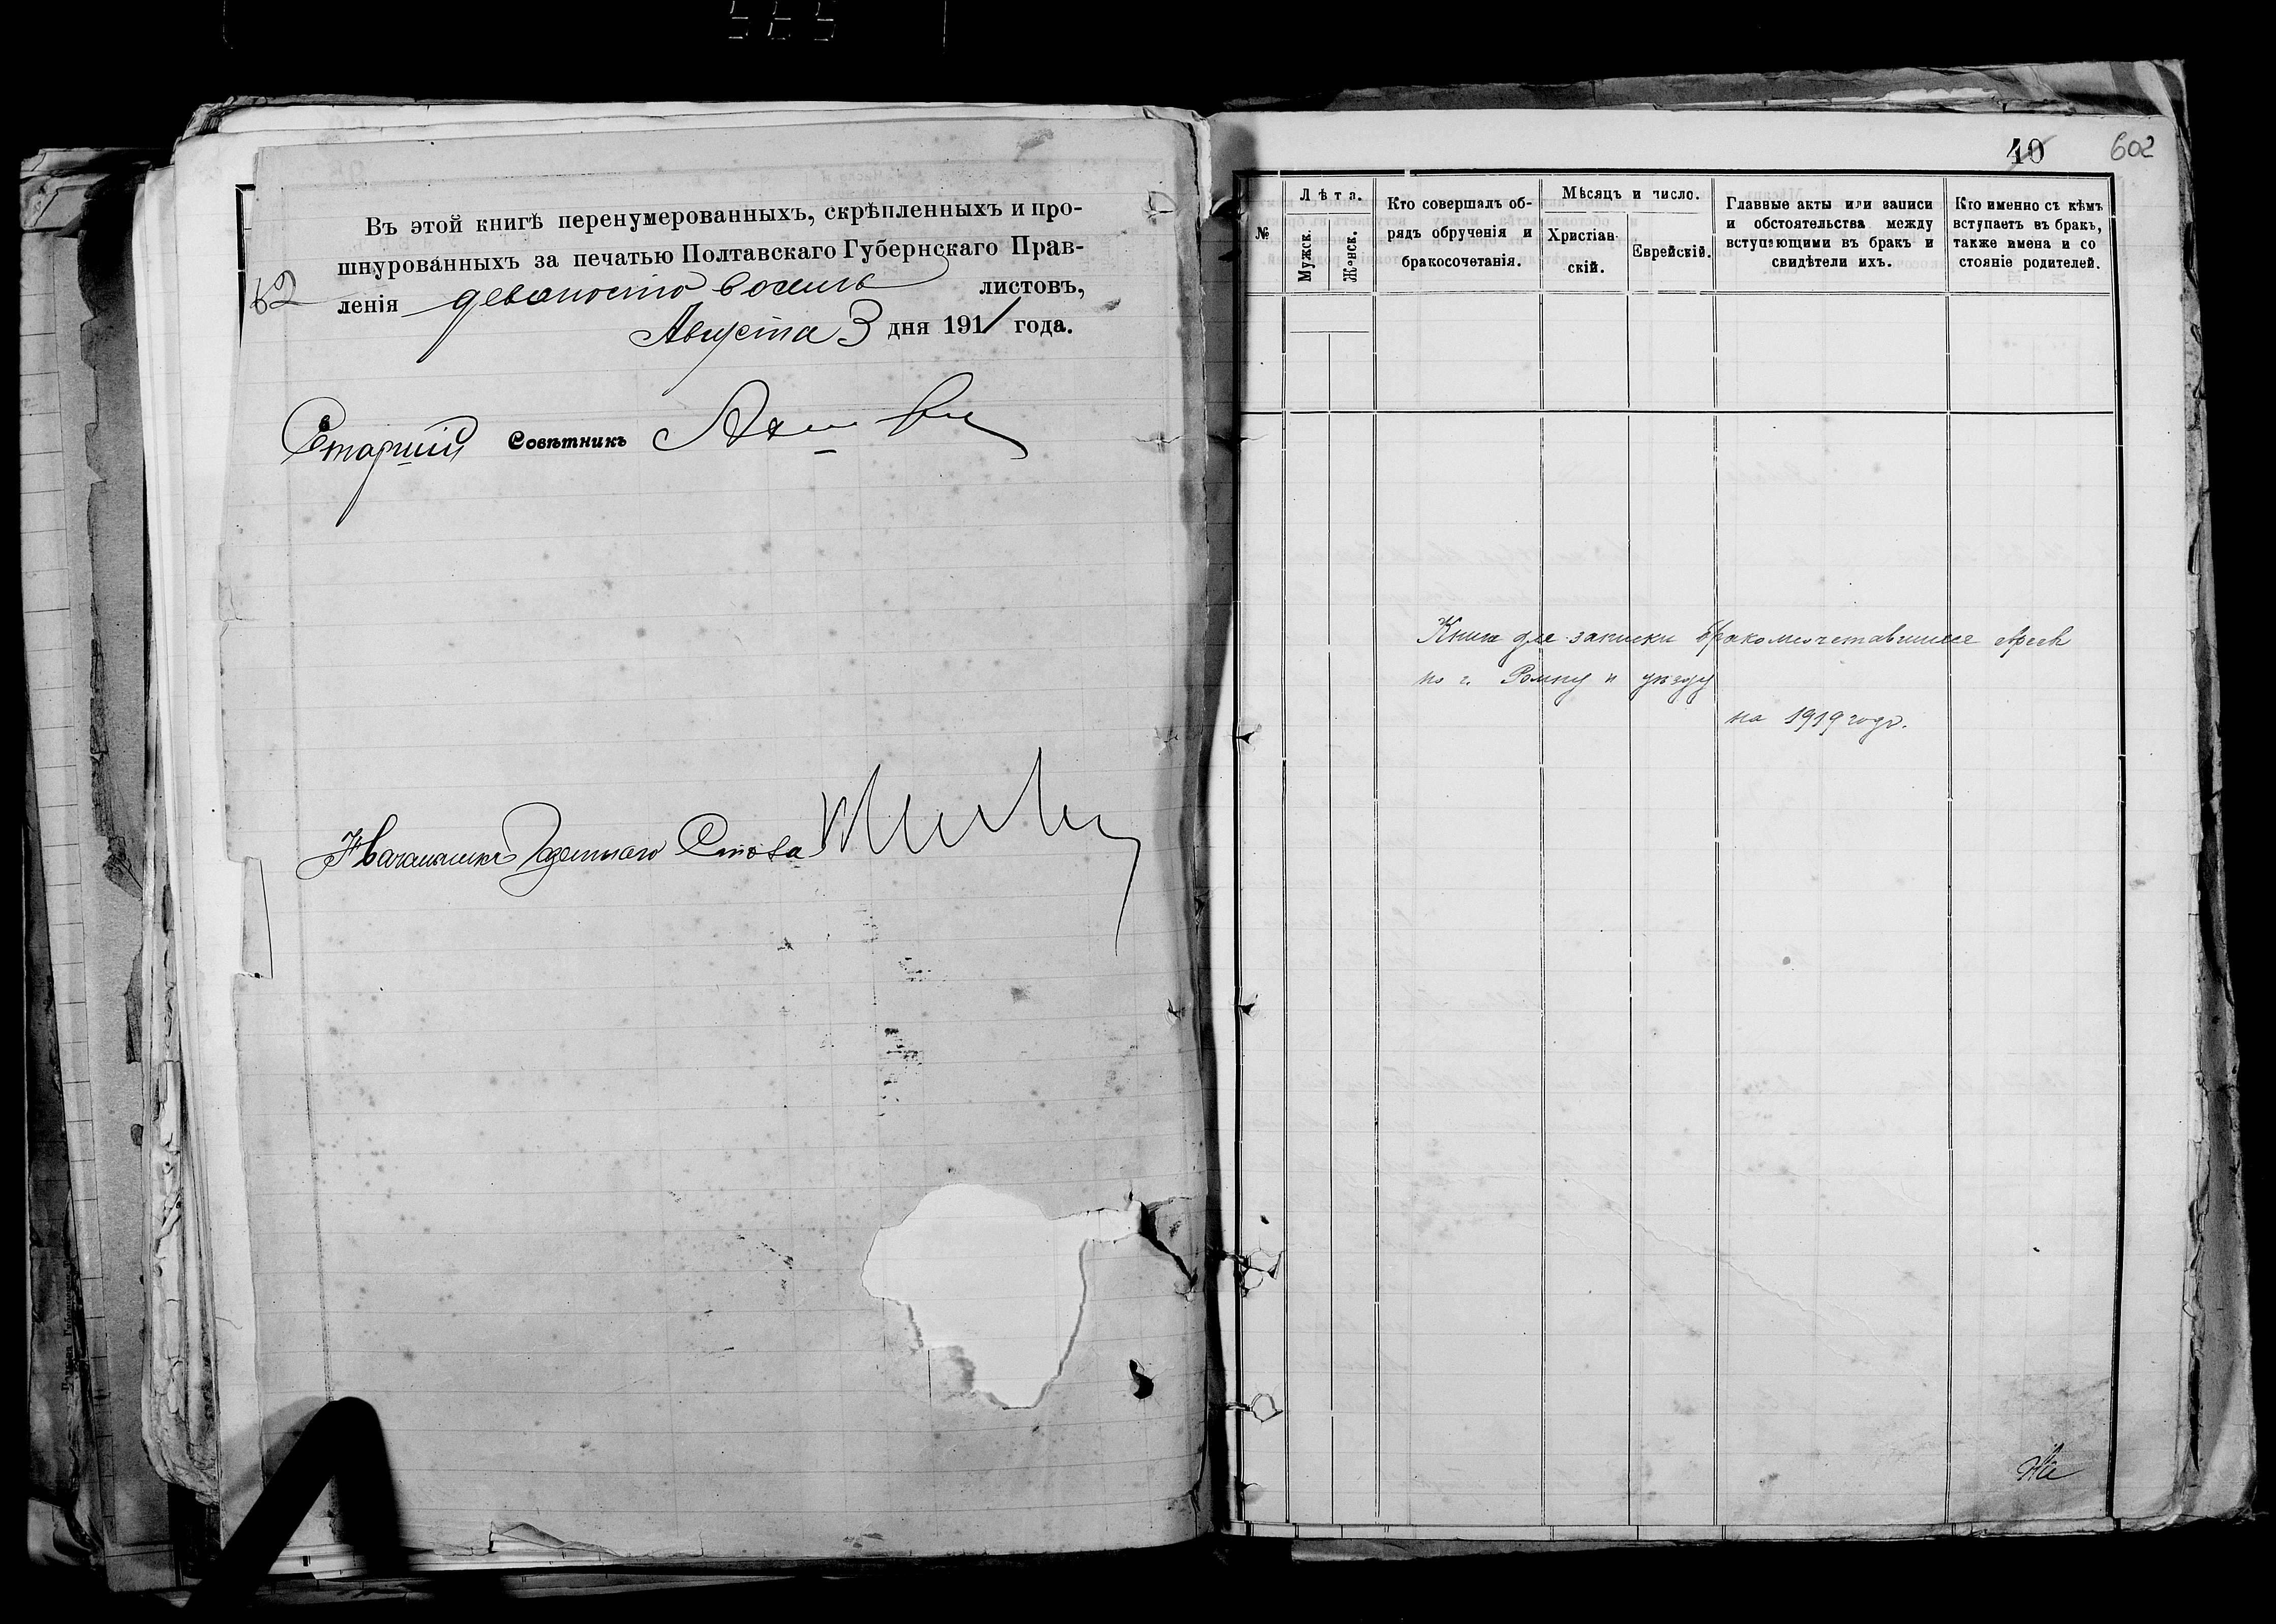 Въ этой книгѣ перенумерованныхъ, скрѣпленныхъ и про-
шнурованныхъ за печатью Полтавскаго Губернскаго Прав-
ленія девяносто восемь листовъ,
Августа 3 дня 1911 года.
Старшій Совѣтникъ
Начальникъ Газетнаго Стола
40 602
№
Лѣта.
Мужск.
Женск.
Кто совершалъ об-
рядъ обрученія и
бракосочетанія.
Мѣсяцъ и число.
Христіан-
скій.
Еврейскій.
Главные акты или записи
и обстоятельства между
вступающими въ бракъ и
свидѣтели ихъ.
Кто именно съ кѣмъ
вступаетъ въ бракъ,
также имена и со
стояніе родителей.
Книга для записки
по г. Ромну и уѣзду
на 1919 годъ.